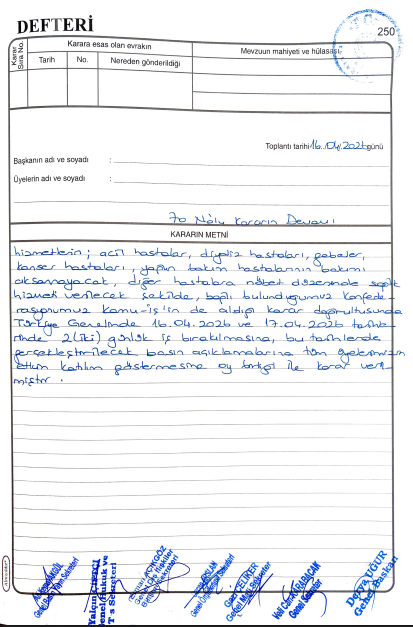 DEFTERİ
250
Karar Sıra No.
Karara esas olan evrakın
Mevzuun mahiyeti ve hülasası
Tarih
No.
Nereden gönderildiği
Toplantı tarihi 16.04.2026 günü
Başkanın adı ve soyadı :
Üyelerin adı ve soyadı :
70 Nolu Kararın Devamı
KARARIN METNİ
hizmetlerin; acil hastalar, diyaliz hastaları, gebeler,
kanser hastaları, yoğun bakım hastalarının bakımı
aksamayacak, diğer hastalara nöbet düzeninde sağlık
hizmeti verilecek şekilde, bağlı bulunduğumuz konfede-
rasyonumuz Kamu-iş'in de aldığı karar doğrultusunda
Türkiye Genelinde 16.04.2026 ve 17.04.2026 tarihle-
rinde 2(iki) günlük iş bırakılmasına, bu tarihlerde
gerçekleştirilecek basın açıklamalarına tüm üyelerimizin
etkin katılım göstermesine oy birliği ile karar veril-
miştir.
Genel Sekreter
Derya UĞUR
Genel Başkan